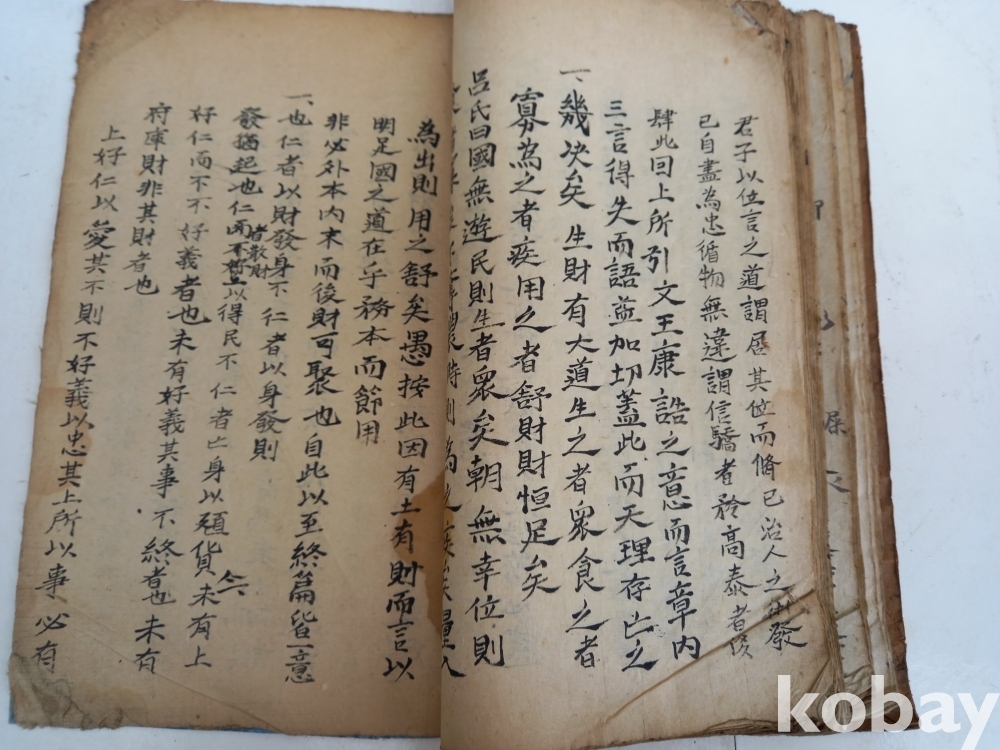 君子以位言之道謂居其位而脩己治人之術發
己自盡為忠循物無違謂信驕者矜高泰者侈
肆此回上所引文王康誥之意而言章內
三言得失而語益加切盖此而天理存亡之
一、幾决矣 生財有大道生之者衆食之者
寡為之者疾用之者舒財財恒足矣
呂氏曰國無遊民則生者衆矣朝無幸位則
時則為之疾矣量入
為出則用之舒矣愚按此因有土有財而言以
明足國之道在乎務本而節用
非必外本內末而後財可聚也自此以至終篇皆一意
一、也仁者以財發身不仁者以身發則
發猶起也仁者散財而不 以得民不仁者亡身以殖貨未有上
好仁而不不好義者也未有好義其事不終者也未有
府庫財非其財者也
上好仁以愛其下則不好義以忠其上所以事必有
kobay